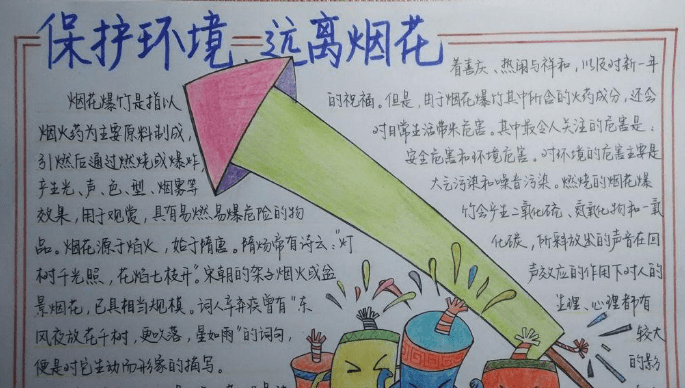 保护环境、远离烟花
烟花爆竹是指以
烟火药为主要原料制成，
引燃后通过燃烧或爆炸，
产生光、声、色、型、烟雾等
效果，用于观赏，具有易燃易爆危险的物
品。烟花源于焰火，始于隋唐。隋炀帝有诗云："灯
树千光照，花焰七枝开"宋朝的架子烟火或盆
景烟花，已具相当规模。词人辛弃疾曾有"东
风夜放花千树，更吹落，星如雨"的词句，
便是对它生动而形象的描写。
着喜庆、热闹与祥和，以及对新一年
的祝福。但是，由于烟花爆竹其中所含的火药成分，还会
对日常生活带来危害。其中最令人关注的危害是：
安全危害和环境危害。对环境的危害主要是
大气污染和噪音污染。燃烧的烟花爆
竹会产生二氧化硫、氮氧化物和一氧
化碳，所释放发的声音在回
声效应的作用下对人的
生理、心理都有
较大
的影